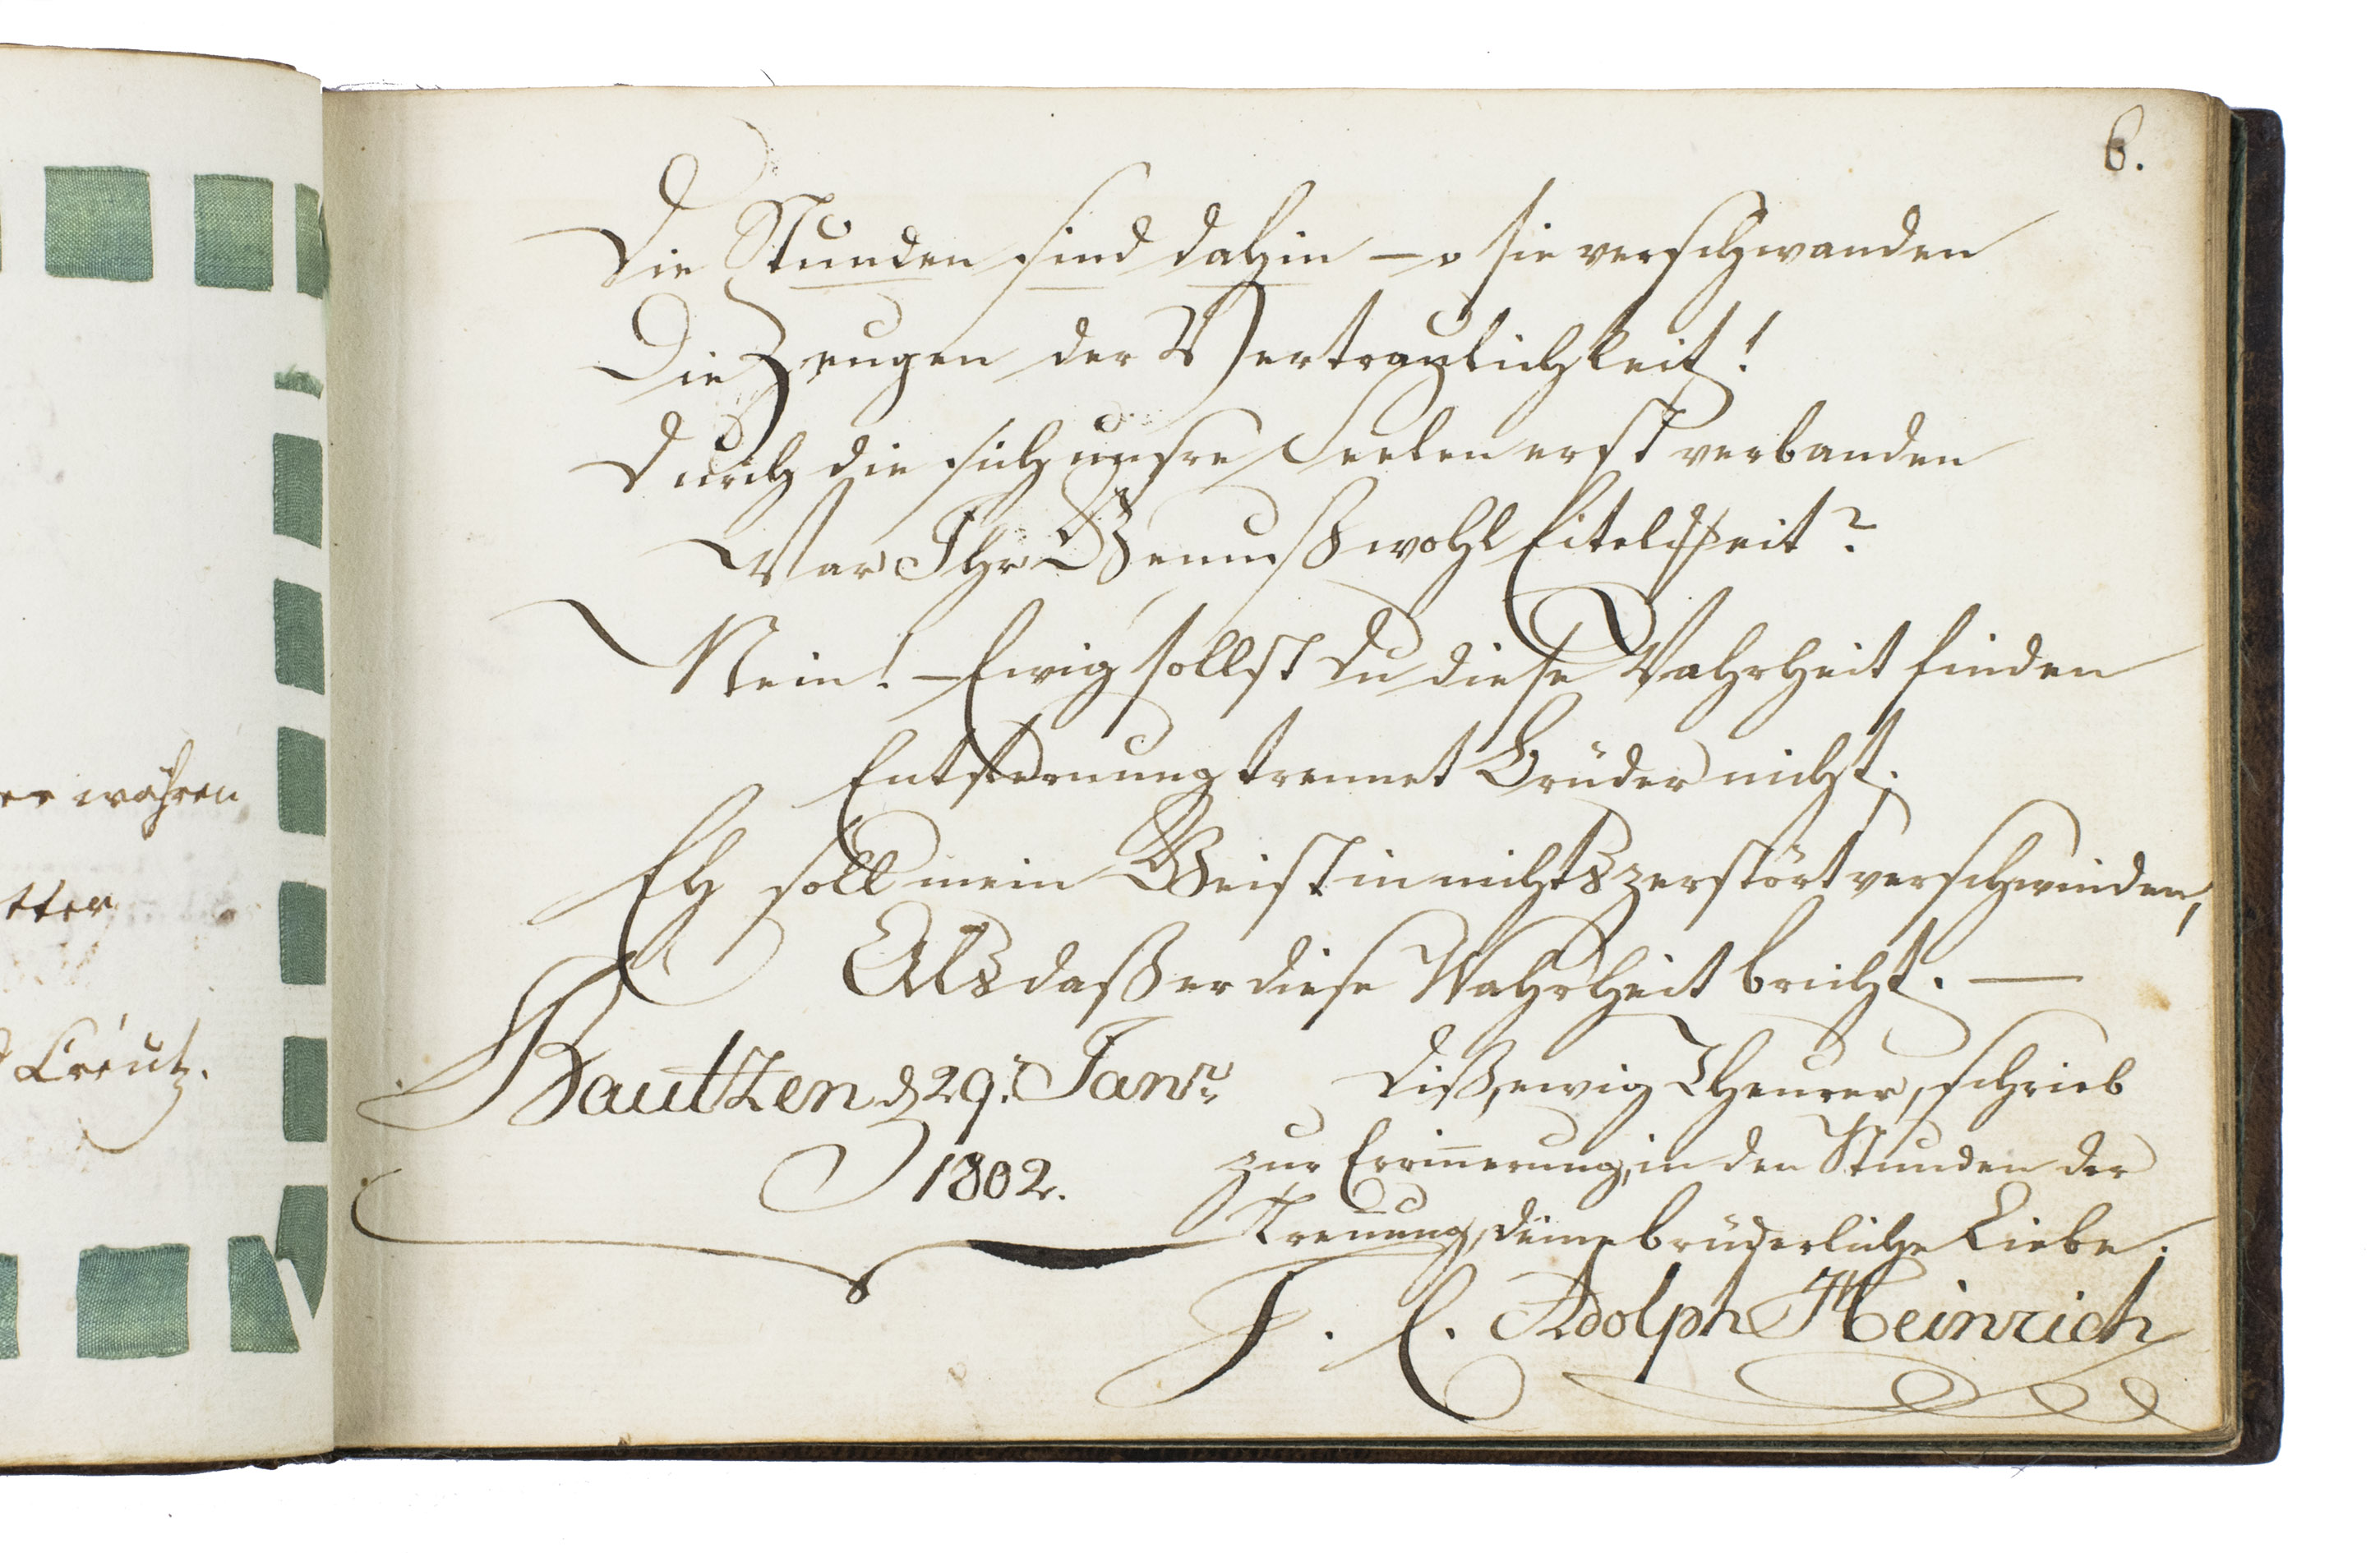 er währen
tter
Creutz.
6.
Die Stunden sind dahin — o sie verschwanden
Die Zeugen der Vertraulichkeit!
Durch die sich unsre Seelen erst verbanden
War Ihr Genuß wohl Eitelkeit?
Nein! — Ewig sollst Du diese Wahrheit finden
Entfernung trennet Brüder nicht;
Eh soll mein Geist in nichts zerstört verschwinden,
Als daß er diese Wahrheit bricht. —
Bautzen d 29. Janr
1802.
Diß, ewig Theurer, schrieb
zur Erin̄erung, in den Stunden der
Tren̄ung, deine brüderliche Liebe.
F. E. Adolph Heinrich